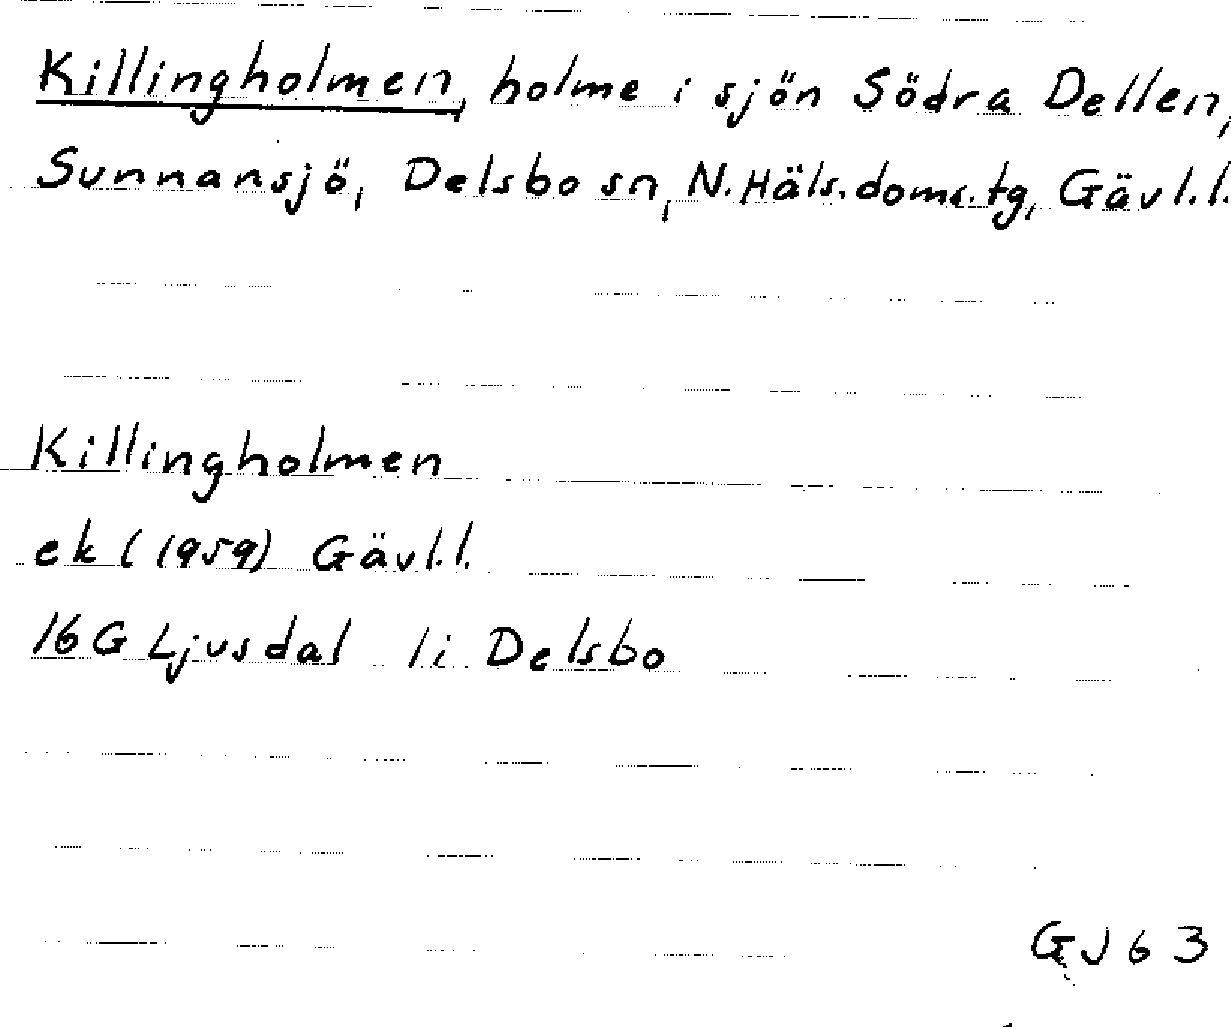 Killingholmen, holme i sjön Södra Dellen,
Sunnansjö, Delsbo sn, N. Häls. doms. tg, Gävl. l.
Killingholmen
ek (1959) Gävl. l.
16 G Ljusdal 1i Delsbo
GJ 63